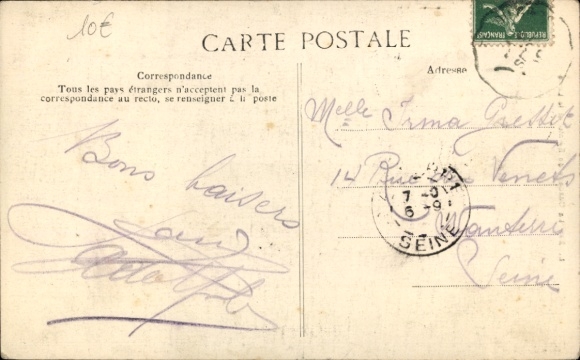 10€
RÉPUBLIQUE FRANÇAISE
CARTE POSTALE
Correspondance
Tous les pays étrangers n'acceptent pas la
correspondance au recto, se renseigner à la poste
Adresse
Bons baisers
Melle Irma
14 Rue Venets
Nanterre
Seine
7
6 -9
SEINE